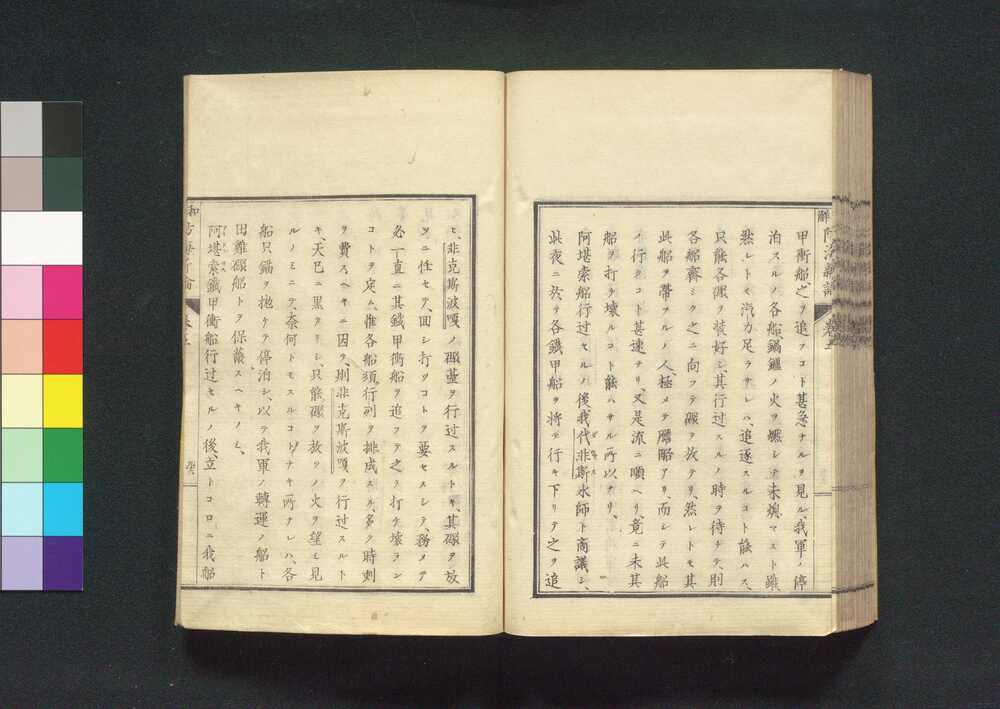 甲衝船之ヲ追フコト甚急ナルヲ見ル、我軍ノ停
泊スルノ各船、鍋鑪ノ火ヲ燃シテ未燠マスト雖
然レトモ汽力足ラサレハ、追逐スルコト能ハス、
只能各礮ヲ装好シ、其行过スルノ時ヲ待チテ、則
各船齊シク之ニ向フテ礮ヲ放テリ、然レトモ其
此船ヲ帶フルノ人、極メテ膽畧アリ、而シテ此船
ノ行クコト甚速ナリ、又是流ニ順ヘリ、竟ニ未其
船ヲ打チ壊ルコト能ハサル所以ナリ、
阿堪索船行过セルノ後、我代非斯水師ト商議シ、
此夜ニ於テ各鐵甲船ヲ将テ行キ下リテ之ヲ追
ヒ、非克斯波嘎ノ礮臺ヲ行过スルトキ、其礮ヲ放
ツニ任セテ、回シ打ツコトヲ要セスシテ、務メテ
必一直ニ其鐵甲衝船ヲ追フテ之ヲ打チ壊ラン
コトヲ定ム、惟各船須行列ヲ排成スル、多ク時刻
ヲ費スヘキニ因ヲ、則非克斯波嘎ヲ行过スルト
キ、天已ニ黒クシテ、只能礮ヲ放ツノ火ヲ望ミ見
ルノミニテ、奈何トモスルコトナキ所ナレハ、各
船只錨ヲ抛ケテ停泊シ、以テ我軍ノ轉運ノ船ト
田雞礮船トヲ保護スヘキノミ、
阿堪索鐵甲衝船行过セルノ後、立トコロニ我船